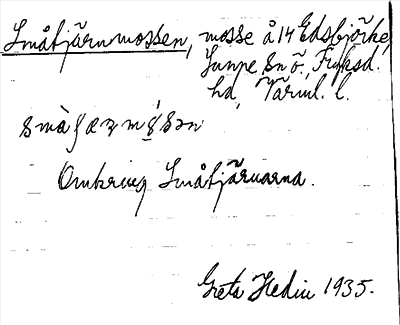 Småtjärnmossen, mosse å 14 Edsbjörke,
Gunne sn ö. Fryksd.
hd, Värml. l.
Omkring Småtjärnarna.
Greta Hedin 1935.